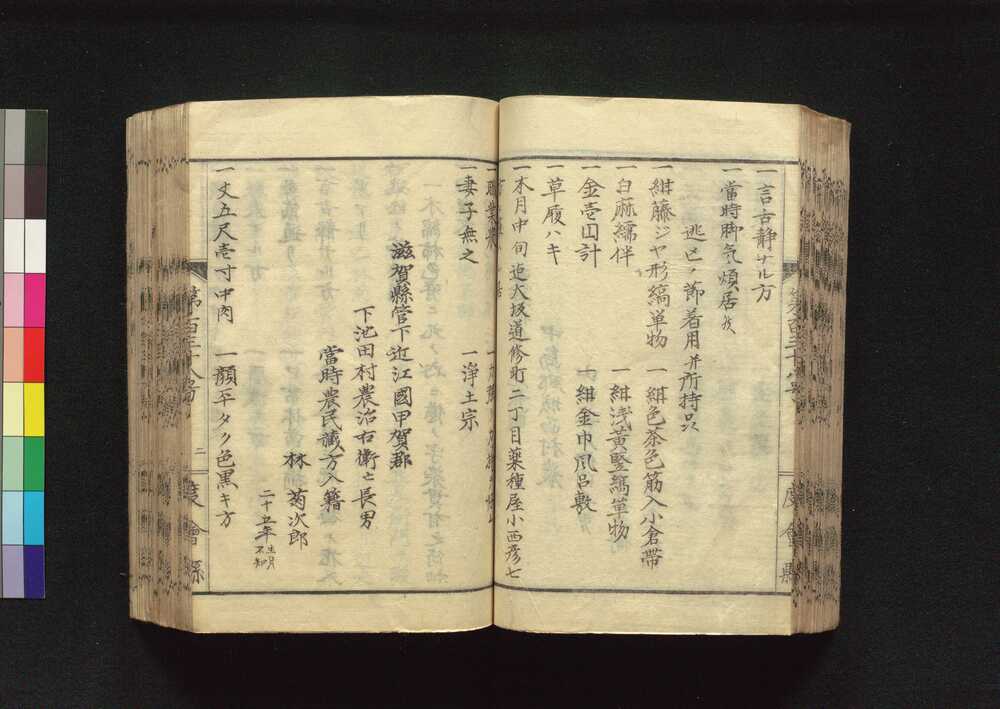 一言舌静ナル方
一當時脚氣煩居候
逃亡ノ節着用并所持品
一紺藤ジヤ形縞単物　一紺色茶色筋入小倉帯
一白麻繻伴　一紺浅黄竪縞單物
一金壱円計　一紺金巾風呂敷
一草履ハキ
一本月中旬迠大坂道修町二丁目薬種屋小西彦七
一職業農
一妻子無之　一浄土宗
滋賀縣管下近江國甲賀郡
下池田村農治右衛亡長男
當時農民藏方入籍
林菊次郎
二十五年
生月不知
一丈五尺壱寸中肉　一顔平タク色黒キ方
第百三十八号
二
度會縣
度會縣